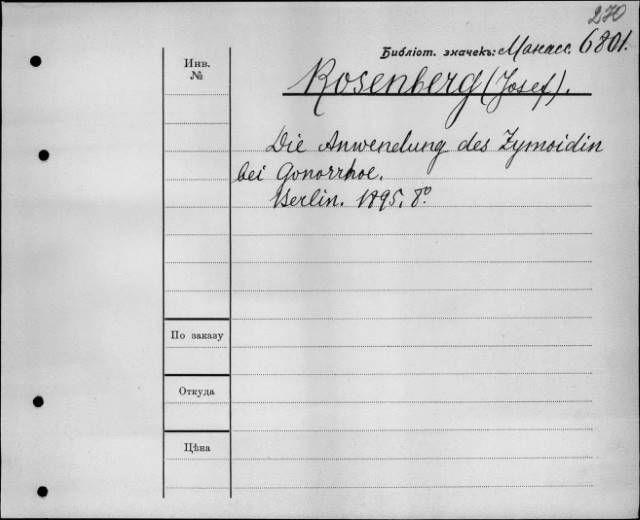 270
Библіот. значекъ: Манасс. 6801.
Инв.
№
Rosenberg (Josef).
Die Anwendung des Zymoidin
bei Gonorrhoe.
Berlin. 1895. 8º.
По заказу
Откуда
Цѣна